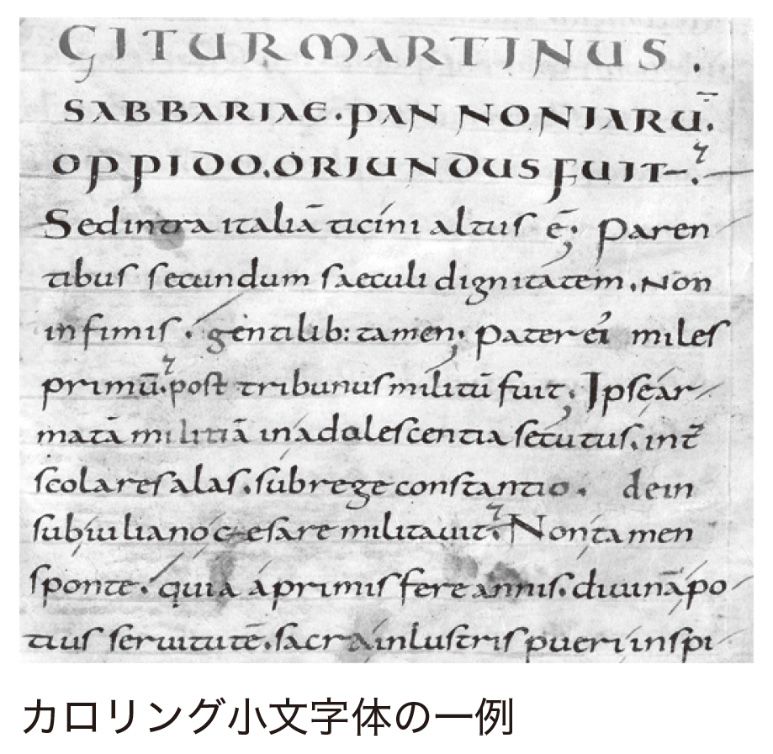 GITUR MARTINUS.
SABBARIAE. PANNONIARŪ.
OPPIDO. ORIUNDUS FUIT
Sed intra italiā ticini altus ē; Paren
tibus secundum saeculi dignitatem. Non
infimis. gentilib: tamen; pater ei miles
primū. post tribunus militū fuit; Ipse ar
matā militiā in adolescentia secutus. int̄
scolares alas. sub rege constantio. dein
sub iuliano cęsare militauit. Non tamen
sponte. quia a primis fere annis. diuinā po
tius seruitutē. sacra inlustris pueri inspi
カロリング小文字体の一例